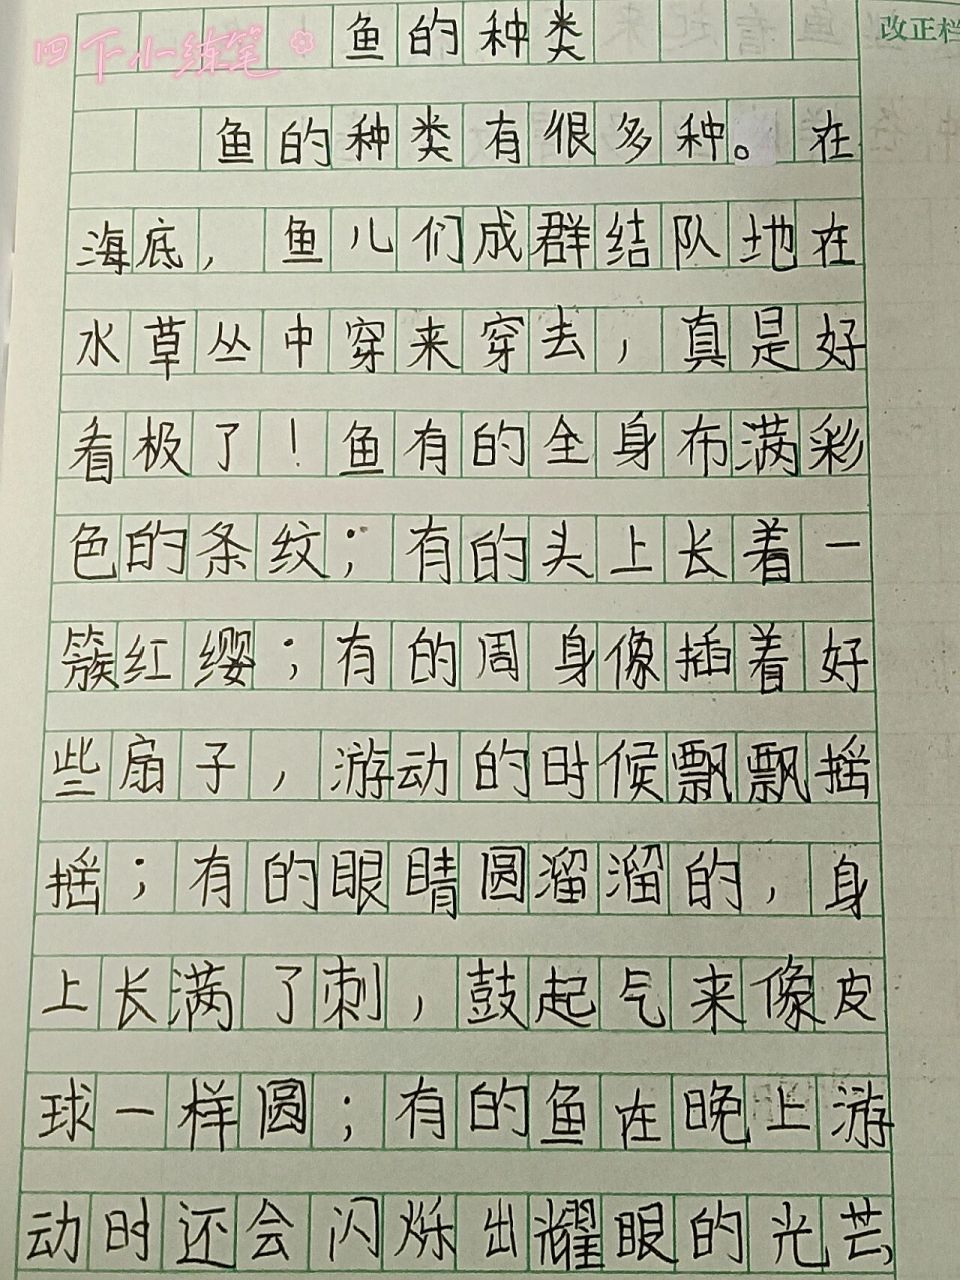 四下小练笔
鱼的种类
改正栏
鱼的种类有很多种。在
海底，鱼儿们成群结队地在
水草丛中穿来穿去，真是好
看极了！鱼有的全身布满彩
色的条纹；有的头上长着一
簇红缨；有的周身像插着好
些扇子，游动的时候飘飘摇
摇；有的眼睛圆溜溜的，身
上长满了刺，鼓起气来像皮
球一样圆；有的鱼在晚上游
动时还会闪烁出耀眼的光芒，